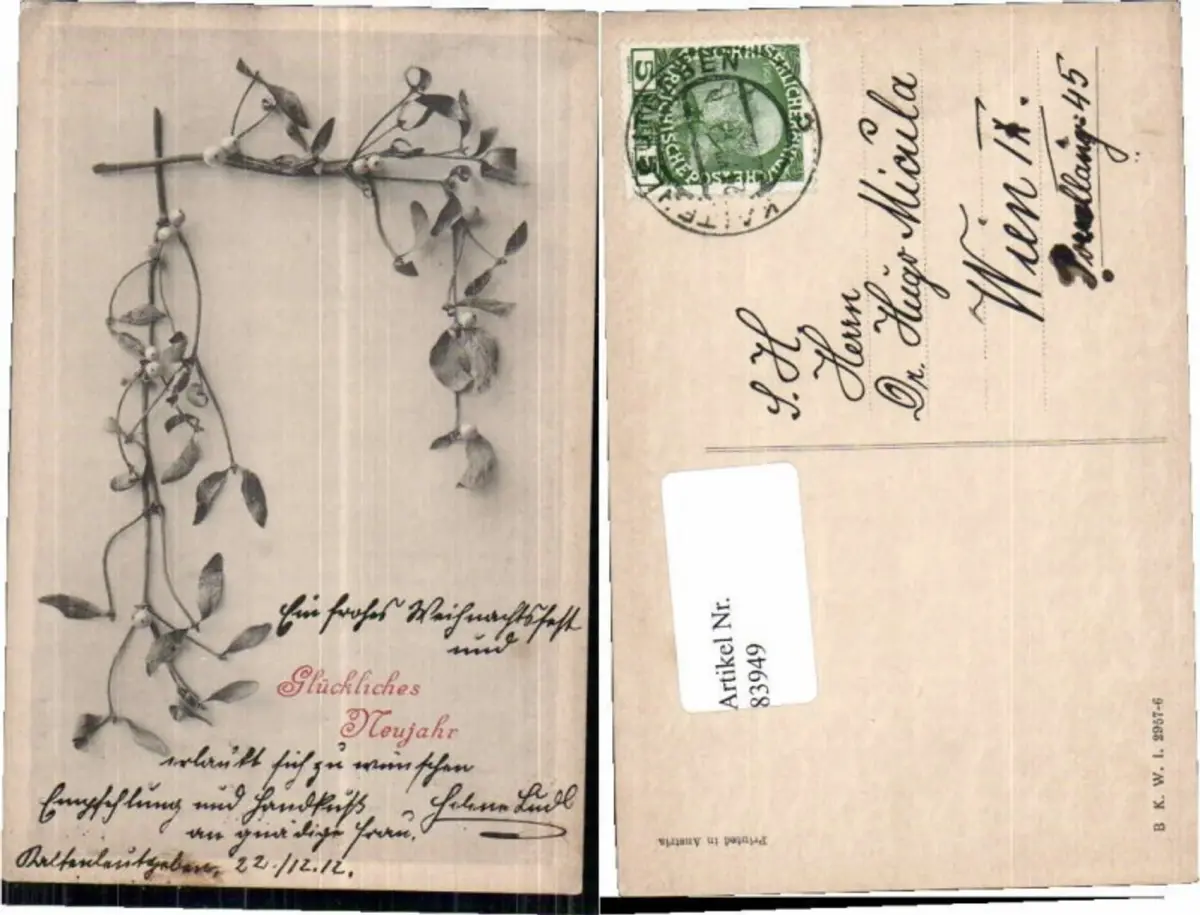 Ein frohes Weihnachtsfest
und
Glückliches
Neujahr
erlaubt sich zu wünschen
Empfehlung und Handkuß Helene
an gnädige Frau.
Kaltenleutgeben, 22./12.12.
5
KALTENLEUTGEBEN
S. H
Herrn
Dr. Hugo Micula
Wien IX.
45
Artikel Nr.
83949
B K. W. I. 2957-6
Printed in Austria